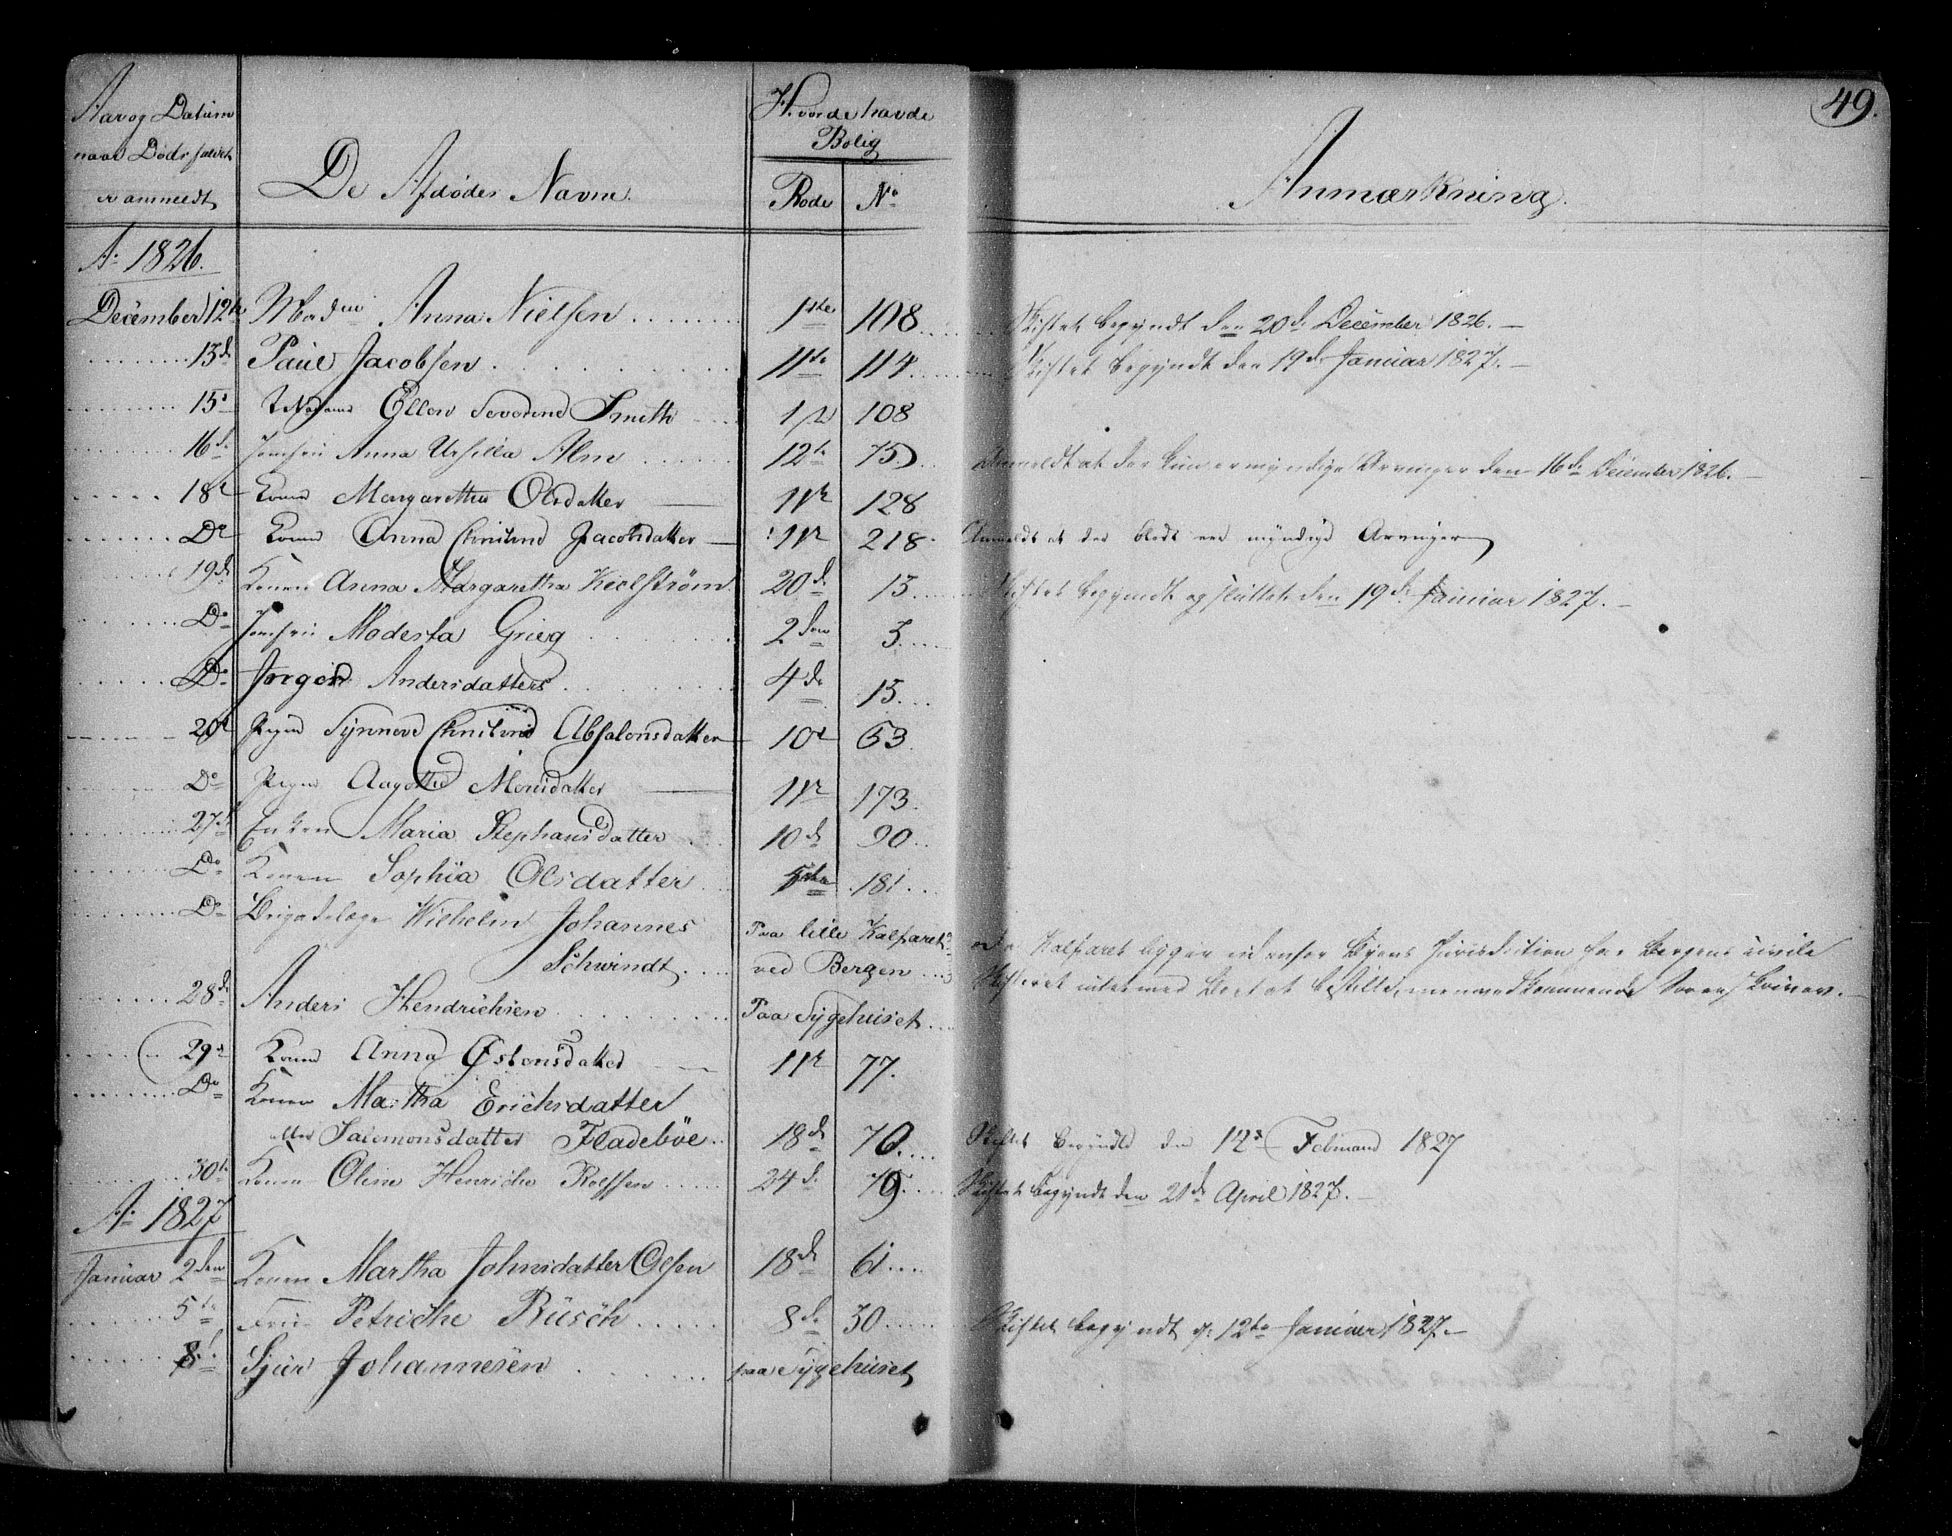 49.
Aar og Datum Hvor de havde
naar Døds faldet Bolig
er anmeldt De Afdødes Navne. Rode No Anmærkning.
Ao 1826.
December 12te Madme Anna Nielsen 1ste 108 Skiftet begyndt den 20de December 1826.
13de Paul Jacobsen 11te 114 Skiftet begyndt den 19de Januar 1827.
15de Madame Ellen Severine Smith 1ste 108
16de Jomfru Anna Ursilla Alm 12te 75 Anmeldt at der kun er myndige Arvinger den 16de December 1826.
18de Kone Margaretha Olsdatter 11te 128
Do Kone Anna Christine Jacobsdatter 11te 218 Anmeldt at der blot er myndige Arvinger
19de Konen Anna Margaretha Kielström 20de 13 Skiftet begyndt og sluttet den 19de Januar 1827.
Do Jomfru Modesta Grieg 2den 3
Do Jørgen Andersdatters 4de 13
20de Pigen Synneve Christine Absalonsdatter 10de 63
Do Pigen Aagotte Monsdatter 11te 173
27de Enken Maria Stephansdatter 10de 90
Do Konen Sophia Olsdatter 181
Do Brigadelæge Wilhelm Johannes Paa lille Kalfaret
Schwindt ved Bergen
Kalfaret ligger udenfor Byens Jurisdiction Bergens civile
Skifteret intet med Boet at bestille, men vedkommende Sorenskriver.
28de Anders Hendrichsen Paa Sygehuset
29de Kone Anna Østensdatter 11te 77
Do Konen Martha Erichsdatter
eller Salemonsdatter Fladebøe 18de 70 Skiftet begyndt den 14de Februar 1827
30te Konen Oline Henriche Rolfsen 24de 79 Skiftet begyndt den 21de April 1827.
Ao 1827
Januar 2den Konen Martha Johnsdatter Olsen 18de 61
5te Fru Petriche Büsch 8de 30 Skiftet begyndt 12te Januar 1827.
8de Sjur Johannesen paa Sygehuset